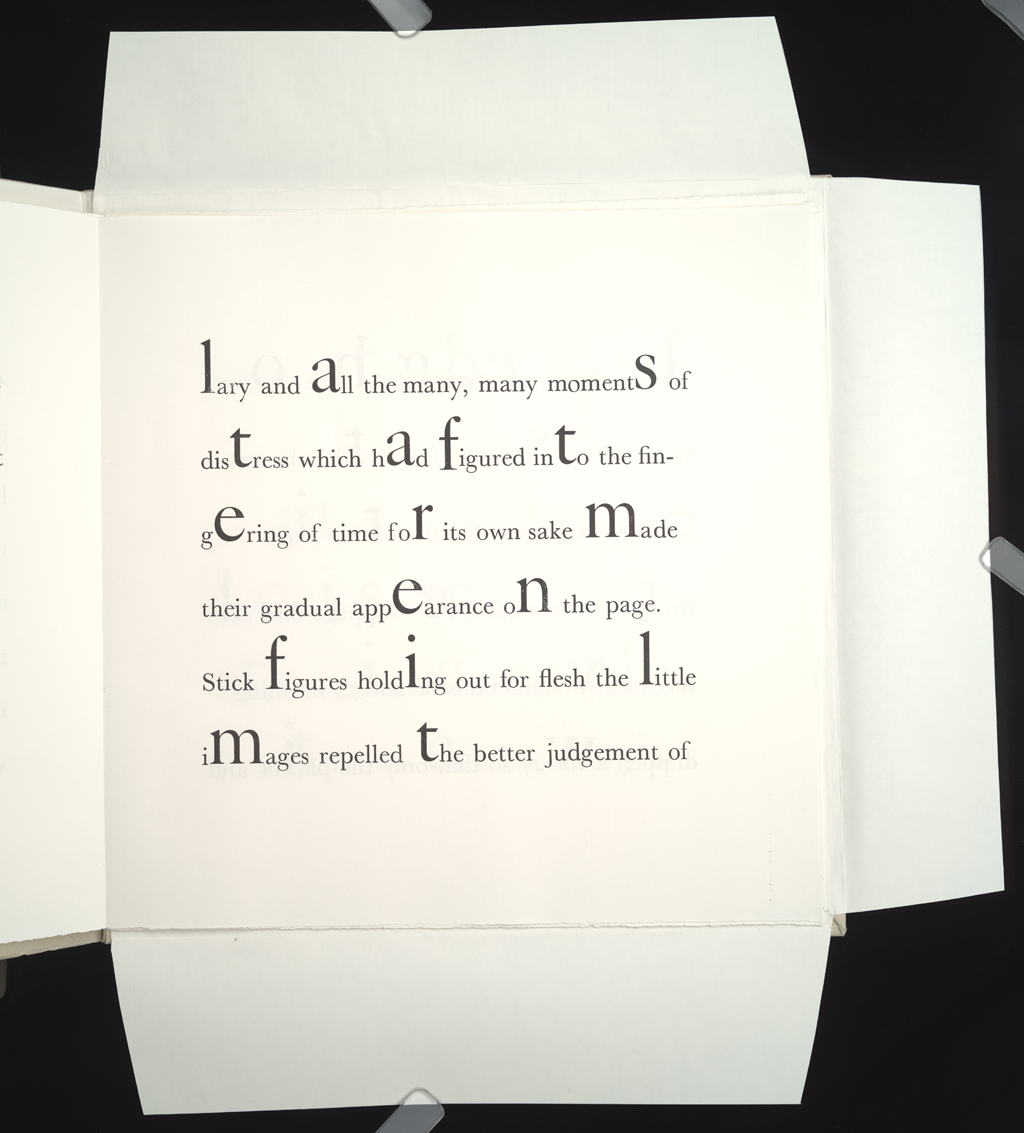 lary and all the many, many moments of
distress which had figured into the fin-
gering of time for its own sake made
their gradual appearance on the page.
Stick figures holding out for flesh the little
images repelled the better judgement of